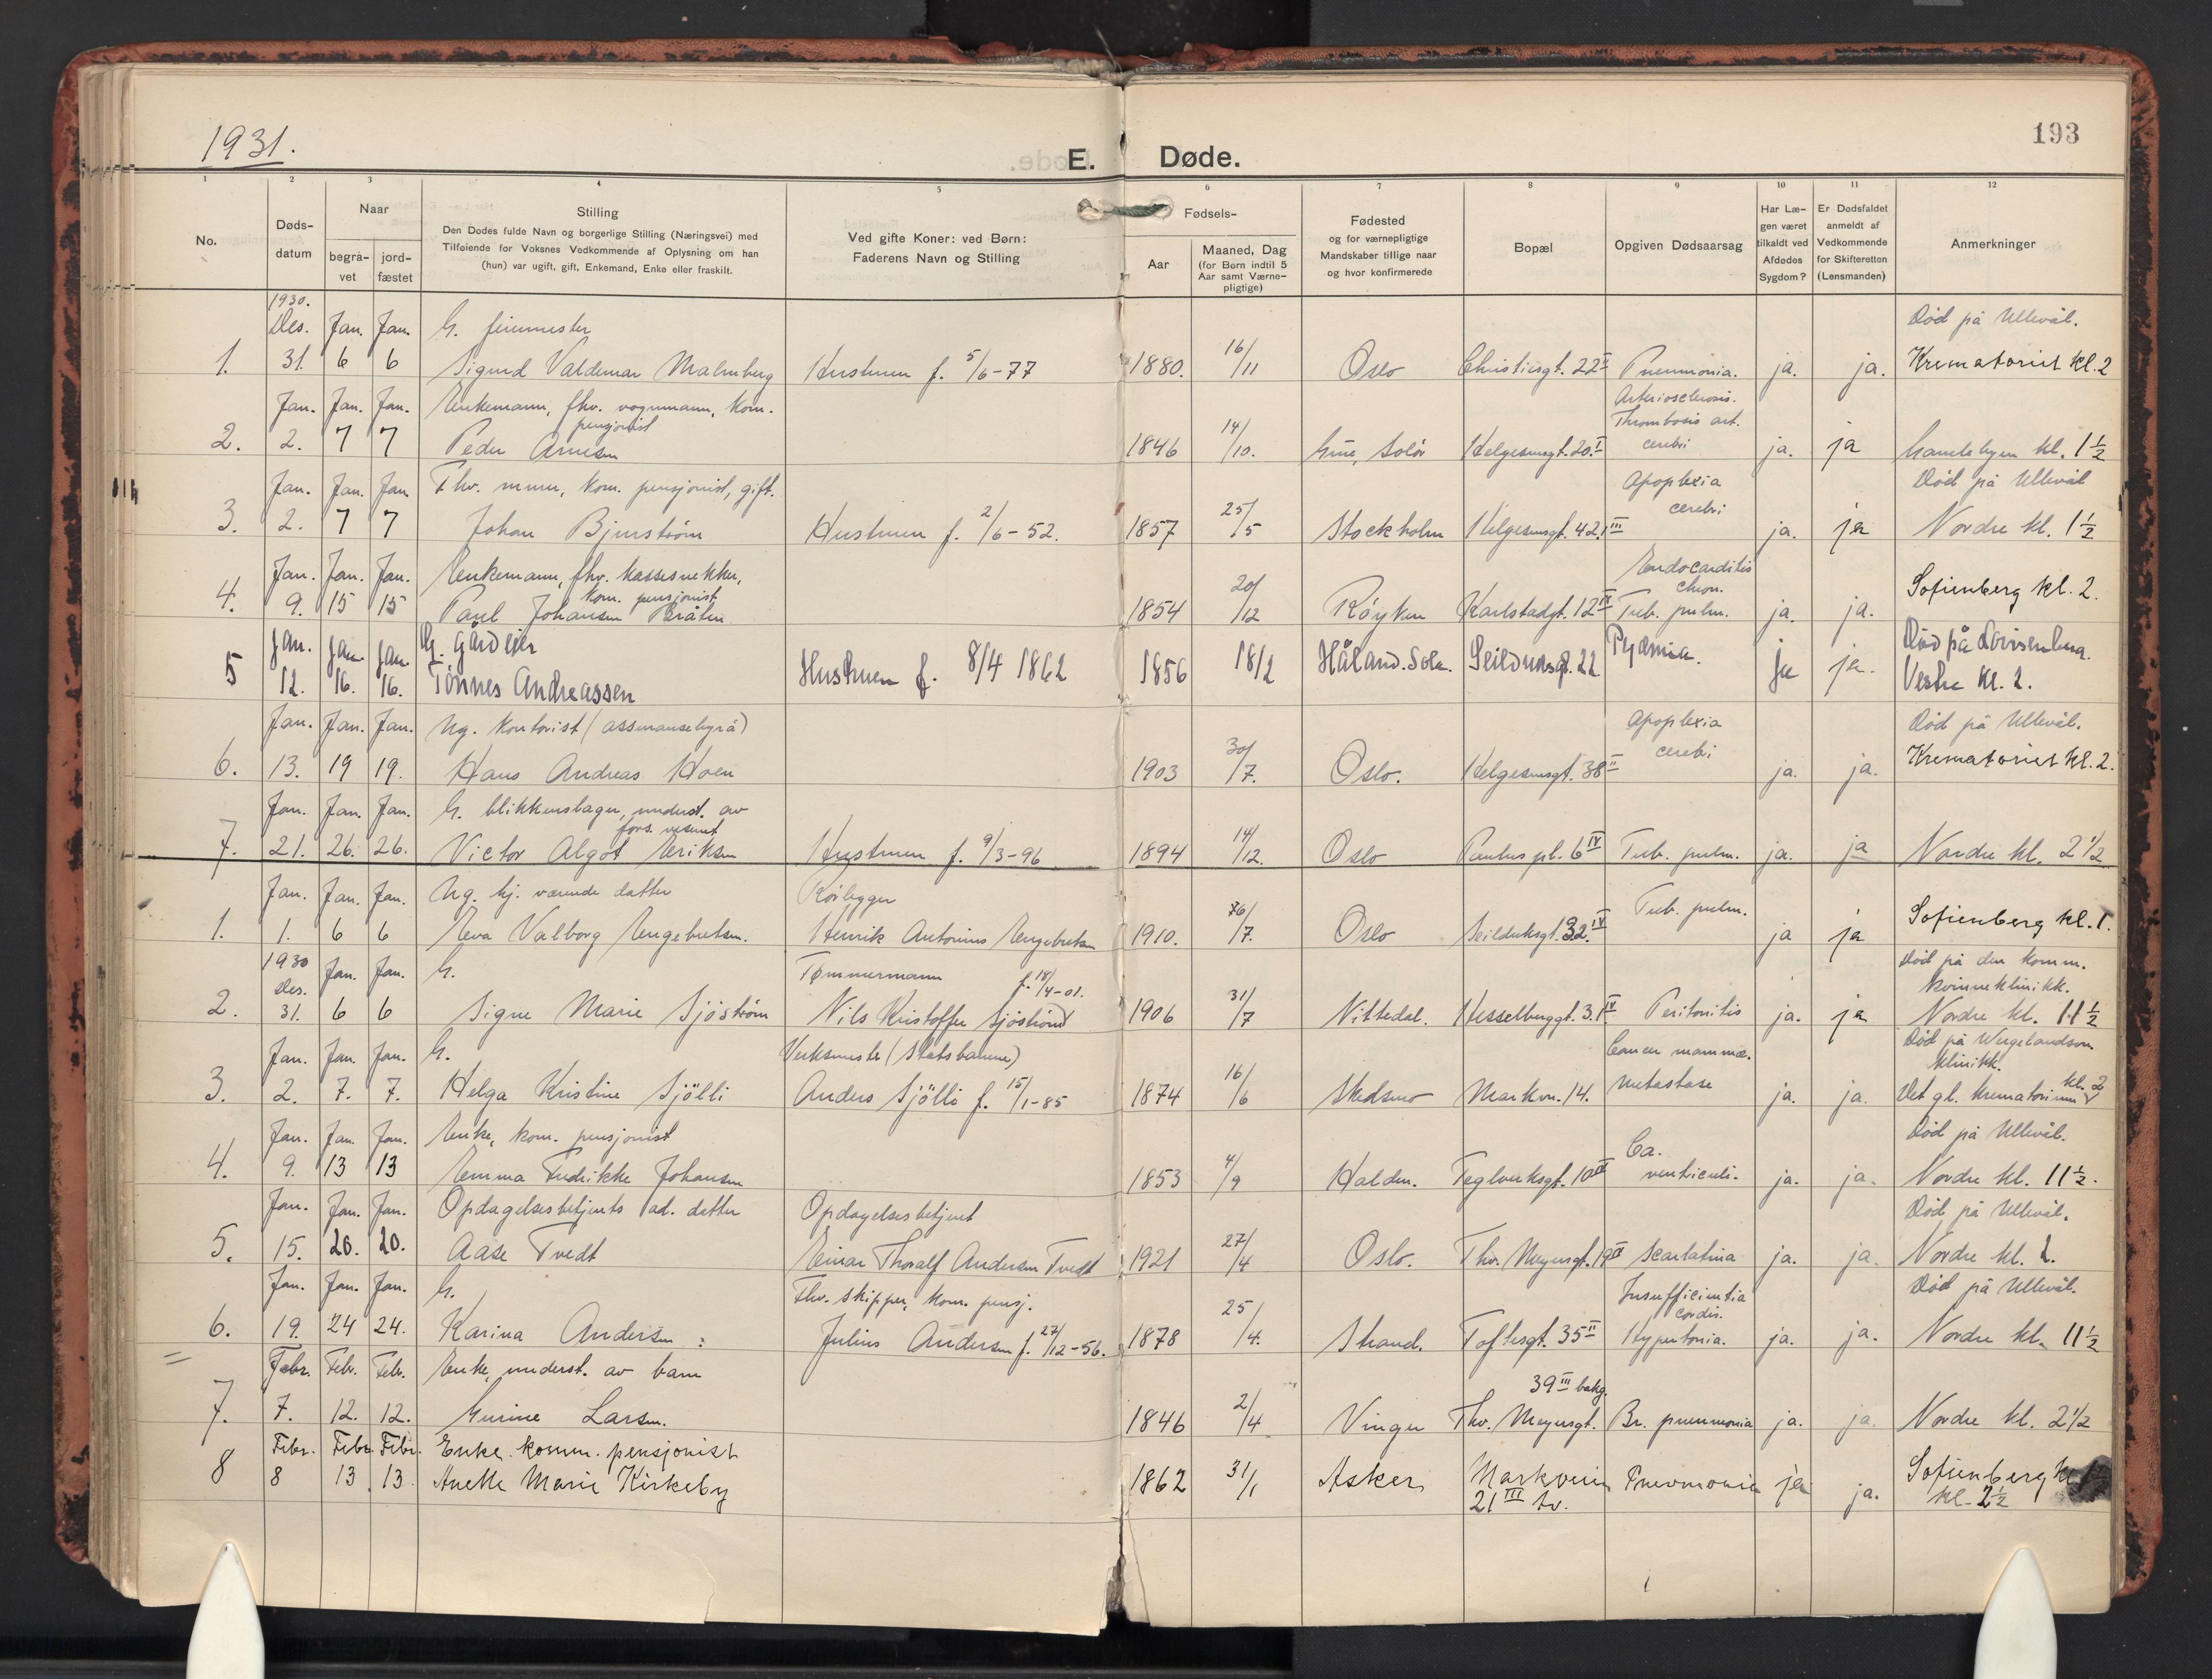 1931.
E. Døde.
193
1 2 3 4 5 6 7 8 9 10 11 12
No.
Døds-
datum
Naar
begra-
vet
jord-
fæstet
Stilling
Den Dødes fulde Navn og borgerlige Stilling (Næringsvei) med
Tilføiende for Voksnes Vedkommende af Oplysning om han
(hun) var ugift, gift, Enkemand, Enke eller fraskilt.
Ved gifte Koner: ved Børn:
Faderens Navn og Stilling
Fødsels-
Aar
Maaned, Dag
(for Børn indtil 5
Aar samt Værne-
pligtige)
Fødested
og for værnepligtige
Mandskaber tillige naar
og hvor konfirmerede
Bopæl
Opgiven Dødsaarsag
Har Læ-
gen været
tilkaldt ved
Afdødes
Sygdom?
Er Dødsfaldet
anmeldt af
Vedkommende
for Skifteretten
(Lensmanden)
Anmerkninger
1930.
Des. Jan. Jan. G. feiermester Død på Ullevål.
1. 31. 6 6 Sigurd Valdemar Malmberg Hustruen f. 5/6-77 1880. 16/11 Oslo Christiesgt. 22 Pneumonia. ja. ja. Krematoriet kl. 2
Jan. Jan. Jan. Enkemann, fhv. vognmann, kom. Arteriosclerosis.
pensjonist Thrombosis art.
2. 2. 7 7 Peder Arnesen 1846 14/10. Grue, Solør Helgesensgt. 20 I cerebri ja. ja Gamlebyen kl. 1 1/2
Jan. Jan. Jan. Fhv. murer, kom. pensjonist, gift. Apoplexia Død på Ullevål
3. 2. 7 7 Johan Bjurström Hustruen f. 2/6-52. 1857 25/5 Stockholm Helgesensgt. 42 III cerebri ja. ja Nordre kl. 1 1/2
Jan. Jan. Jan. Enkemann, fhv. kassesnekker, Endocarditis
kom. pensjonist chron.
4. 9. 15 15 Paul Johansen Bråten 1854 20/12 Røyken Karlstadgt. 12 Tub. pulm. ja. ja. Sofienberg kl. 2.
Jan. Jan. Jan. G. gårdeier Død på Lovisenberg.
5 12. 16. 16. Tønnes Andreassen Hustruen f. 8/4 1862 1856 18/2 Håland. Sola. Seilduksgt. 22 Pyæmia. ja ja. Vestre kl. 2.
Jan. Jan. Jan. Ug. kontorist (assuransebyrå) Apoplexia Død på Ullevål.
6. 13. 19 19. Hans Andreas Hoen 1903 30/7. Oslo. Helgesensgt. 38 II cerebri ja. ja. Krematoriet kl. 2.
Jan. Jan. Jan. G. blikkenslager, underst. av
fors. vesenet
7. 21. 26. 26. Victor Algot Eriksen Hustruen f. 9/3-96 1894 14/12. Oslo Paulus pl. 6 IV Tub. pulm. ja. ja Nordre kl. 2 1/2
Jan. Jan. Jan. Ug. hj. værende datter Rørlegger
1. 1. 6 6 Eva Valborg Engebretsen. Henrik Antonius Engebretsen 1910. /7. Oslo Seilduksgt. 32 IV Tub. pulm. ja ja Sofienberg kl. 1.
1930
Des. Jan. Jan. G. Tømmermann f. 18/4-01. Død på den komm.
kvinneklinikk.
2. 31. 6 6 Signe Marie Sjöström Nils Kristoffer Sjöström 1906 31/7 Nittedal. Hesselberggt. 3 IV Peritonitis ja. ja Nordre kl. 11 1/2
Jan. Jan. Jan. G. Verksmester (Statsbanene) Cancer mammae. Død på Wergelandsvn.
klinikk.
3. 2. 7. 7. Helga Kristine Sjölli Anders Sjölli f. 15/1-85 1874 16/6 Skedsmo Markvn. 14. metastase ja. ja. Det gl. krematorium kl. 2
Jan. Jan. Jan. Enke, kom. pensjonist Død på Ullevål.
4. 9. 13 13 Emma Fredrikke Johansen 1853 4/9 Halden. Teglverksgt. 10 Ca. ventriculi. ja. ja. Nordre kl. 11 1/2.
Jan. Jan. Jan. Opdagelsesbetjents ad. datter Opdagelsesbetjent Død på Ullevål.
5. 15. 20. 20. Aase Tvedt Einar Thoralf Andersen Tvedt 1921 27/4 Oslo. Thv. Meyersgt. 19 Scarlatina ja. ja. Nordre kl. 2.
Jan. Jan. Jan. G. Fhv. skipper, kom. pensj. Insufficientia Død på Ullevål.
cordis.
6. 19. 24 24. Karina Andersen Julius Andersen f. 27/12-56. 1878 25/4. Strand. Toftesgt. 35 II Hypertonia. ja. ja. Nordre kl. 11 1/2
Febr. Febr. Febr. Enke, underst. av barn 39 III bakg.
7. 7. 12. 12. Gurine Larsen. 1846 2/4 Vinger Thv. Meyersgt. Br. pneumonia ja. ja. Nordre kl. 2 1/2
Febr. Febr. Febr. Enke. komm. pensjonist
8 8 13 13. Anette Marie Kirkeby 1862 31/1 Asker Markveien Pneumonia ja ja. Sofienberg
21 III tv. kl. 2 1/2